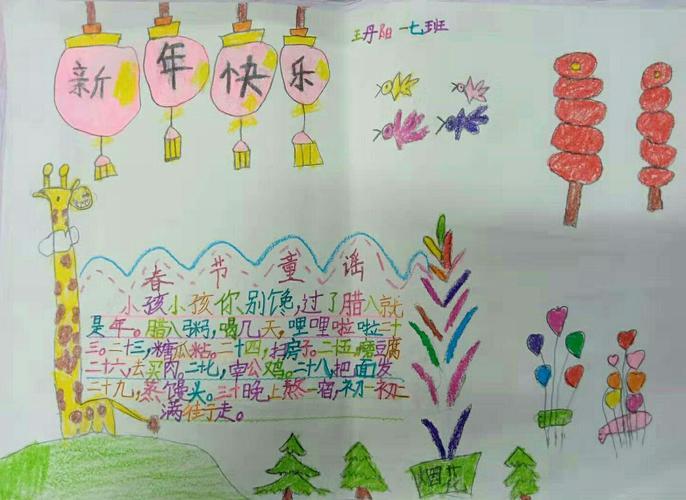 新年快乐
王丹阳 一七班
春节童谣
小孩小孩你别馋,过了腊八就
是年。腊八粥,喝几天,哩哩啦啦二十
三。二十三,糖瓜粘。二十四,扫房子。二十五,磨豆腐
二十六,去买肉,二十七,宰公鸡。二十八,把面发
二十九,蒸馒头。三十晚上熬一宿,初一初二
满街走。
烟花